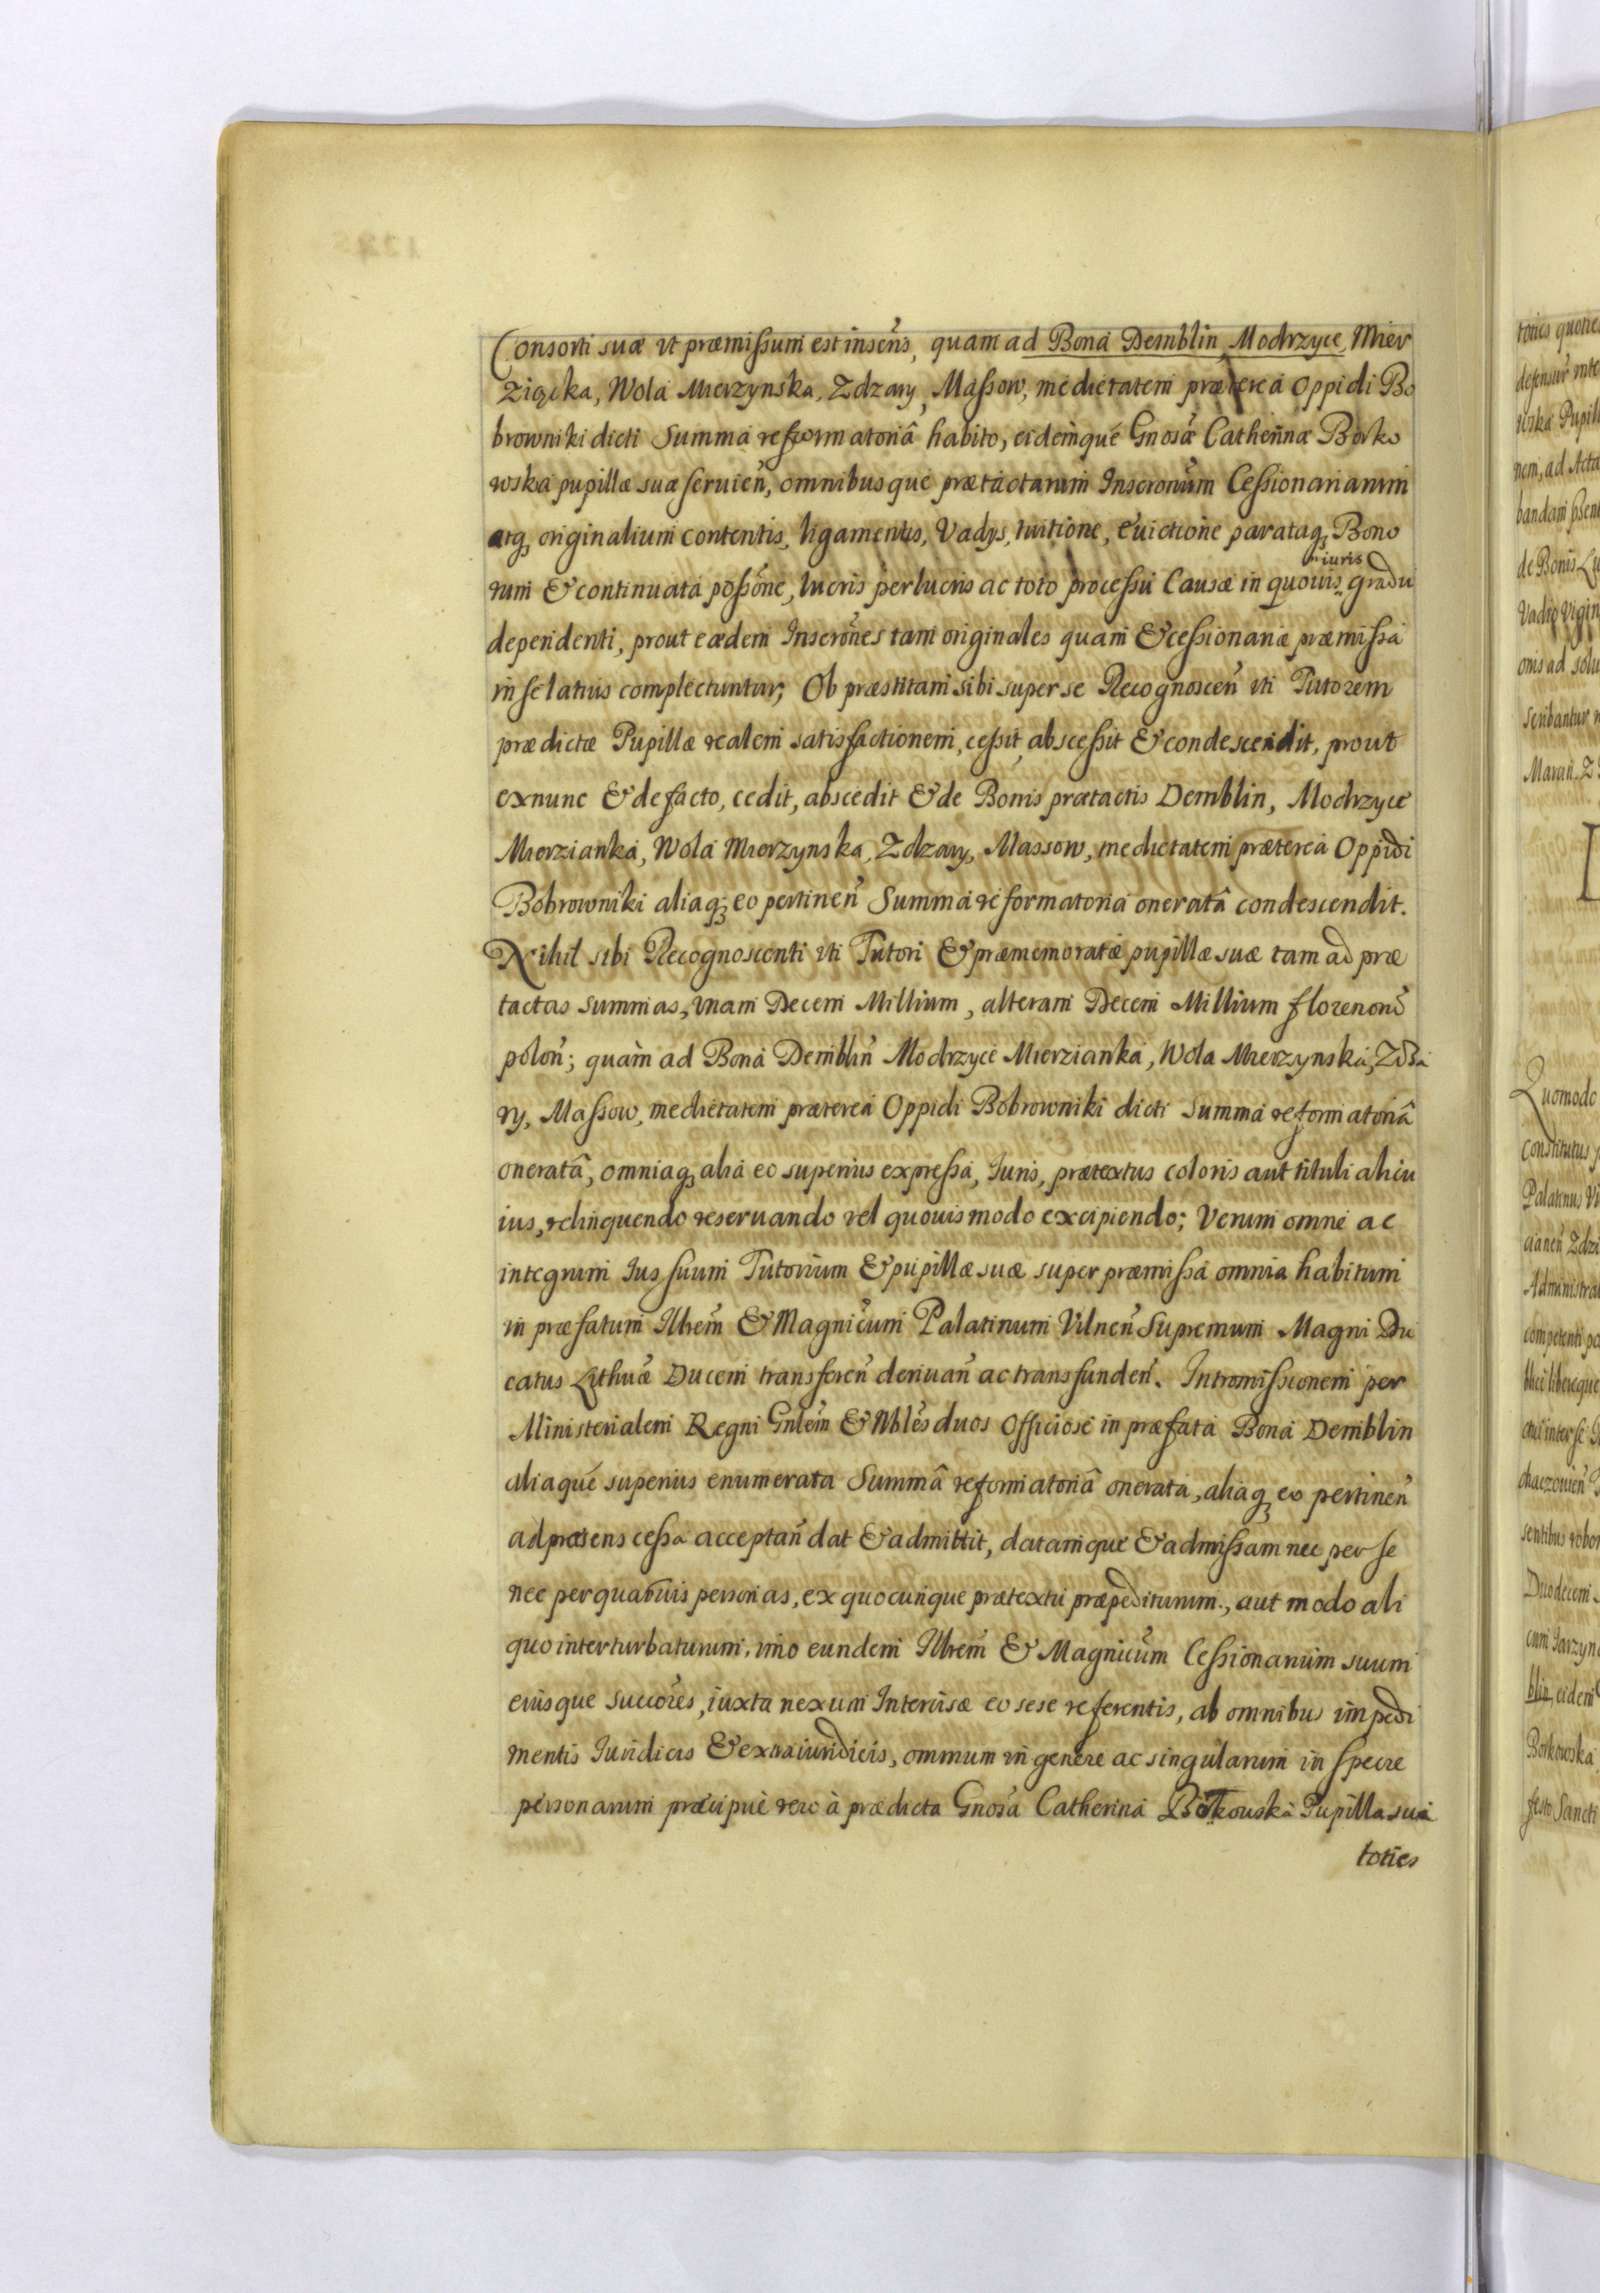 Consorti suæ vt præmissum est inseñs, quam ad Bona Demblin, Modrzyce, Mier
ziącka, Wola Mierzynska, Zdzary, Massow, medietatem præterea Oppidi Bo
browniki dicti Summa reformatoriâ habito, eidemqué Gnosæ Catherinæ Borko
wska pupillæ suæ seruień, omnibusque prætactarum Inscronum Cessionariarum
atq, originalium contentis, ligamentis, Vadys, tuitione, euictione parataq, Bono
rum & continuata possone, lucris perlucris ac toto processu Causæ in quouis iuris gradu
dependenti, prout eædem Inscrones tam originales quam & cessionariæ præmissa
in se latius complectuntur; Ob præstitam sibi super se Recognosceñ vti Tutorem
prædictæ Pupillæ realem satisfactionem, cessit, abscessit & condescendit, prout
exnunc & de facto, cedit, abscedit & de Bonis prætactis Demblin, Modrzyce
Mierzianka, Wola Mierzynska, Zdzary, Massow, medietatem præterea Oppidi
Bobrowniki aliaq; eo pertineñ Summa reformatoria oneratâ condescendit.
Nihil sibi Recognoscenti vti Tutori & præmemoratæ pupillæ suæ tam ad præ
tactas summas, vnam Decem Millium, alteram Decem Millium florenorũ
poloñ; quàm ad Bona Demblin Modrzyce Mierzianka, Wola Mierzynska, Zdza
ry, Massow, medietatem præterea Oppidi Bobrowniki dicti summa reformatoriâ
oneratâ, omniaq, alia eo superius expressa, Iuris, prætextus coloris aut tituli alicu
ius, relinquendo reseruando vel quouis modo excipiendo; Verum omne ac
integrum Ius suum Tutorium & pupillæ suæ super præmissa omnia habitum
in præfatum Illrem & Magnicum Palatinum Vilneñ Supremum Magni Du
catus Lithuæ Ducem transfereñ deriuañ ac transfundeñ. Intromissionem per
Ministerialem Regni Gnlem & Nbles duos Officiose in præfata Bona Demblin
aliaqué superius enumerata Summâ reformatoriâ onerata, aliaq, eo pertineñ
ad præsens cessa acceptañ dat & admittit, datamque & admissam nec per se
nec per quasuis personas, ex quocunque prætextu præpediturum, aut modo ali
quo interturbaturum, imo eundem Illrem & Magnicum Cessionarium suum
eiusque succores, iuxta nexum Intercisæ eo sese referentis, ab omnibus impedi
mentis Iuridicis & extraiuridicis, omnium in genere ac singularum in specie
personarum præcipuè vero à prædicta Gnosa Catherina Borkouska Pupilla sua
toties